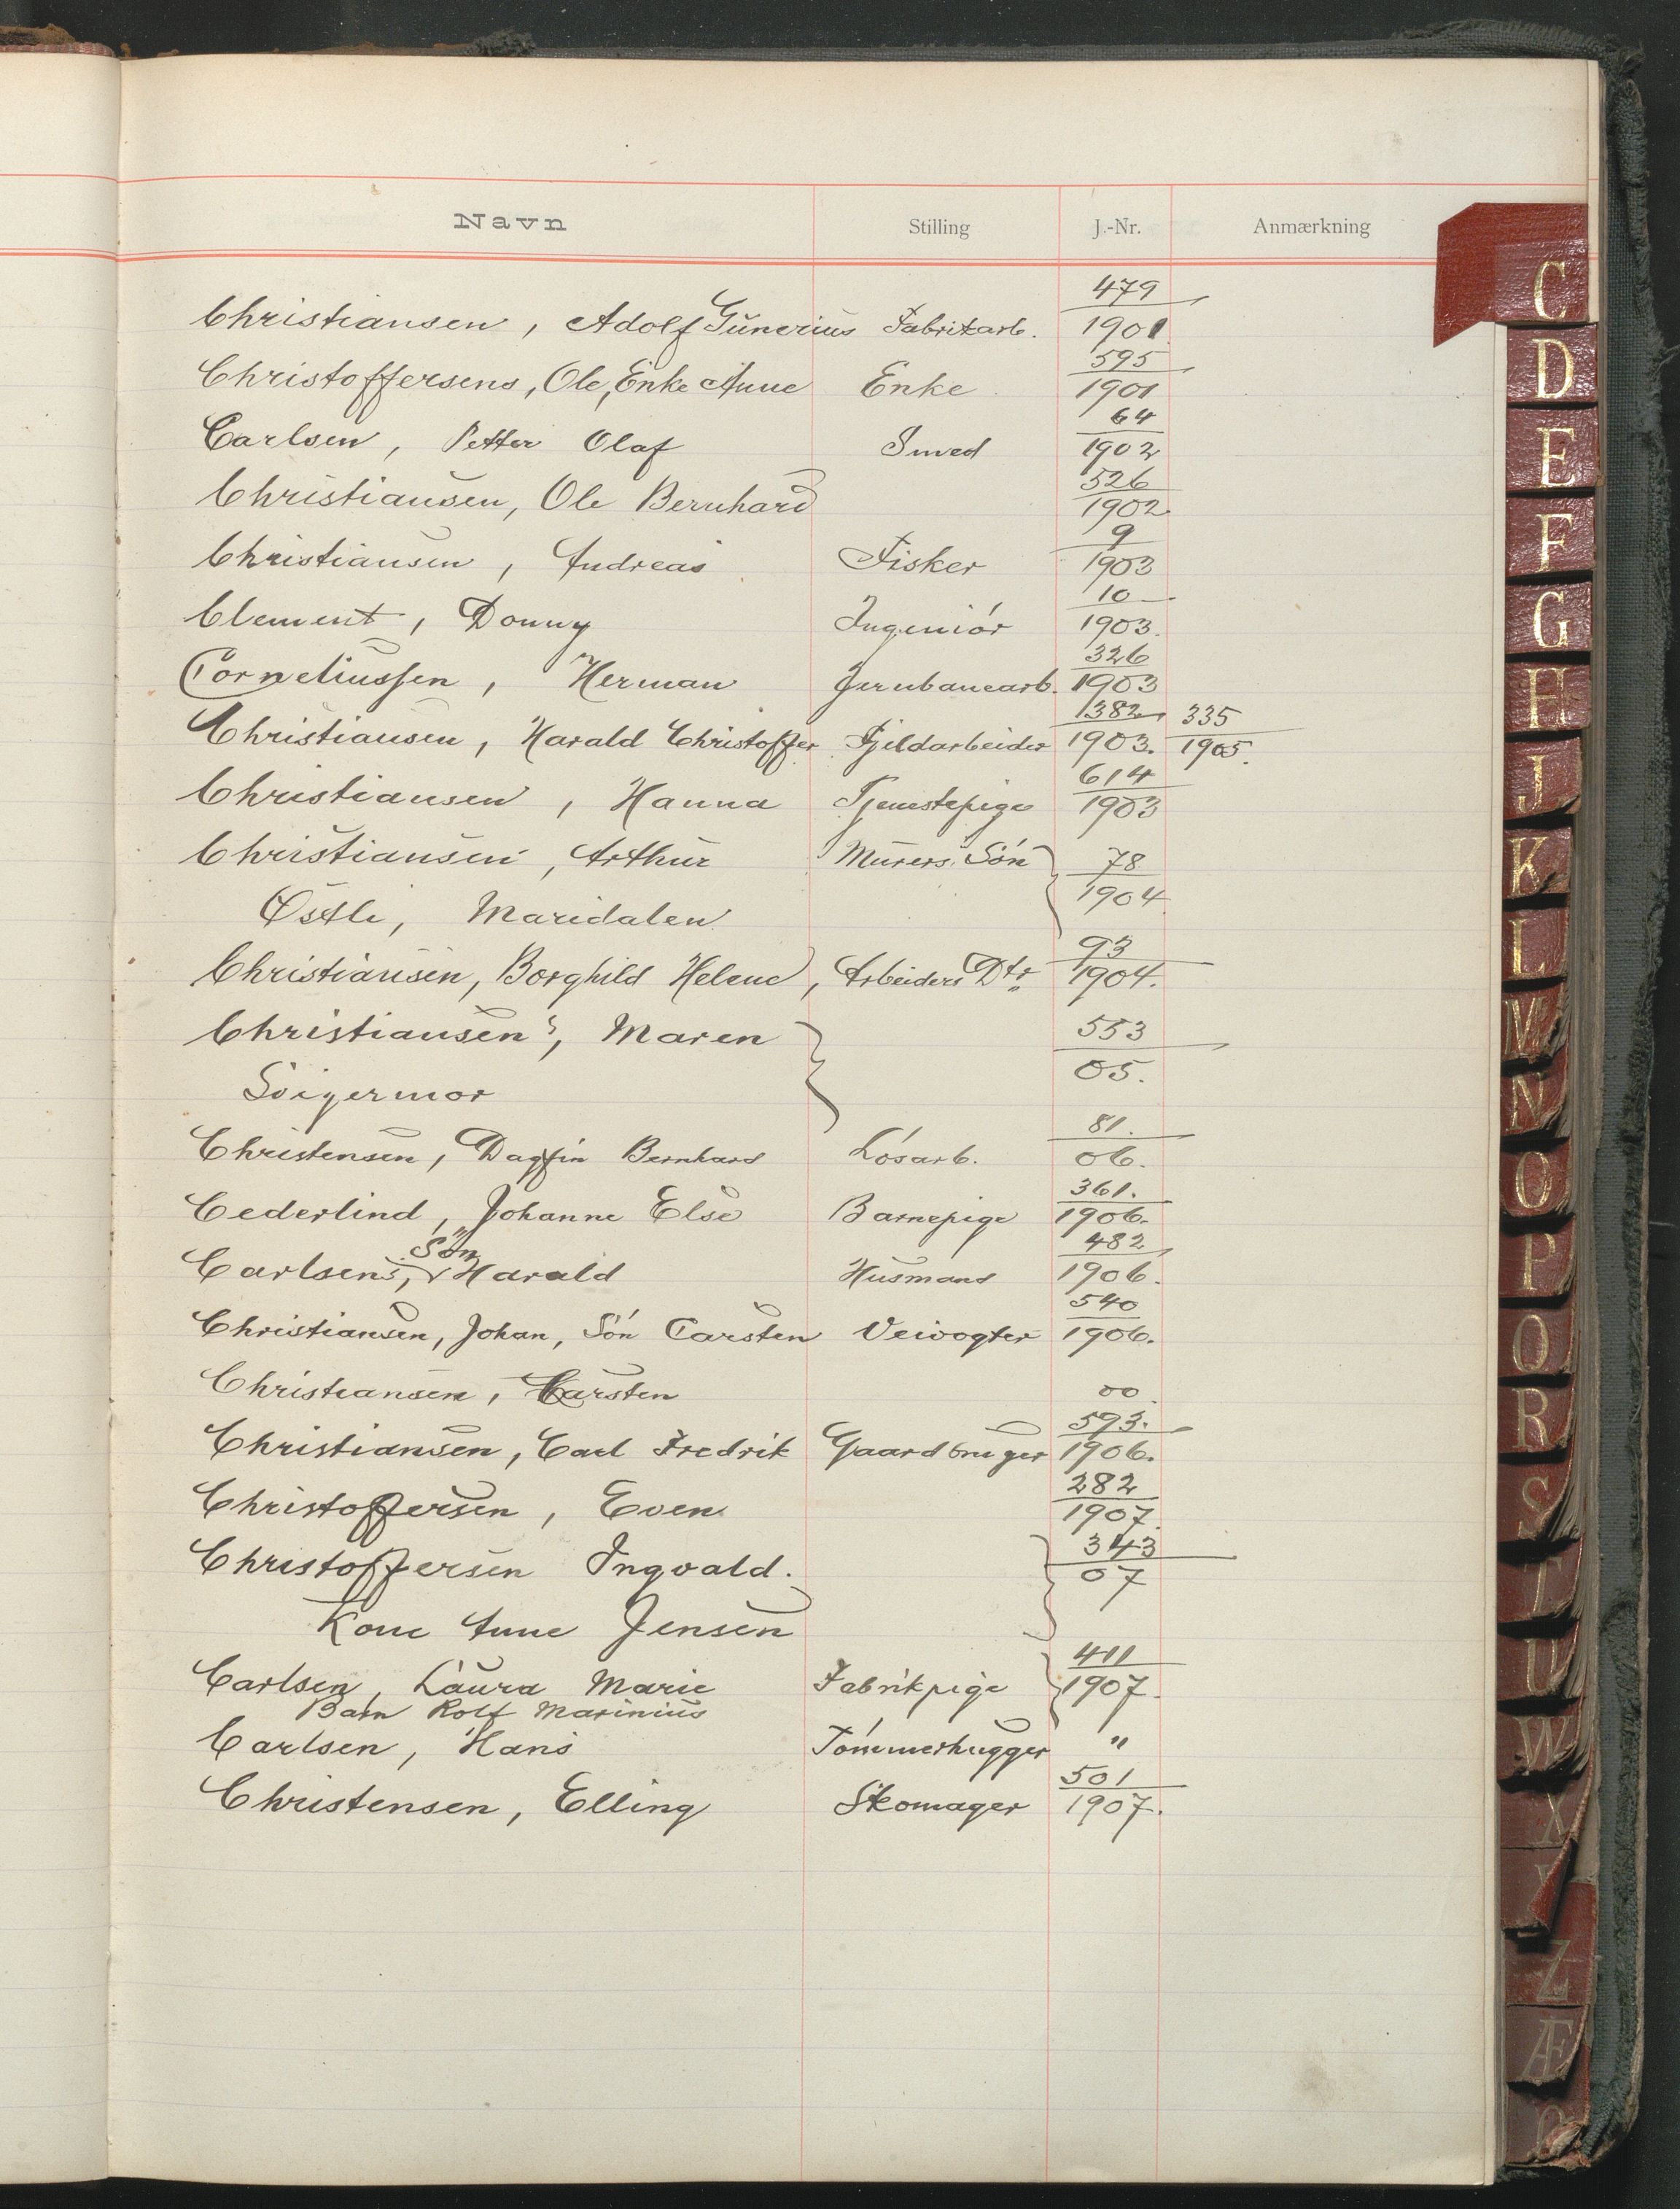 Navn Stilling J.-Nr. Anmærkning
479
Christiansen, Adolf Gunerius Fabrikarb. 1901
595
Christoffersens, Ole, Enke Anne Enke 1901
64
Carlsen, Petter Olaf Smed 1902
526
Christiansen, Ole Bernhard 1902
9
Christiansen, Andreas Fisker 1903
10
Clement, Donny Ingeniór 1903.
326
Corneliussen, Herman Jernbanearb. 1903
1382 335
Christiansen, Harald Christoffer Fjeldarbeider 1903. 1905.
614
Christiansen, Hanna Tjenestepige 1903
Christiansen, Arthur Murers Són 78
1904
Østli, Maridalen
93
Christiansen, Borghild Helene, Arbeiders Dtr. 1904.
Christiansen's, Maren 553
05.
Svigermor
81.
Christensen, Dagfin Bernhard Lósarb. 06.
361.
Cederlind, Johanne Else Barnepige 1906.
Són 482
Carlsens, √ Harald Husmand 1906.
540
Christiansen, Johan, Són Carsten Veivogter 1906.
Christiansen, Carsten oo
593.
Christiansen, Carl Fredrik Gaardbruger 1906.
282
Christoffersen, Even 1907.
343
Christoffersen Ingvald. 07
Kone Anne Jensen
411
Carlsen, Laura Marie Fabrikpige 1907.
Barn Rolf Marinius
Carlsen, Hans Tómmerhugger "
501
Christensen, Elling Skomager 1907.
C
D
E
F
G
H
J
K
L
M
N
O
P
Q
R
S
T
U
W
X
Y
Z
Æ
Ø